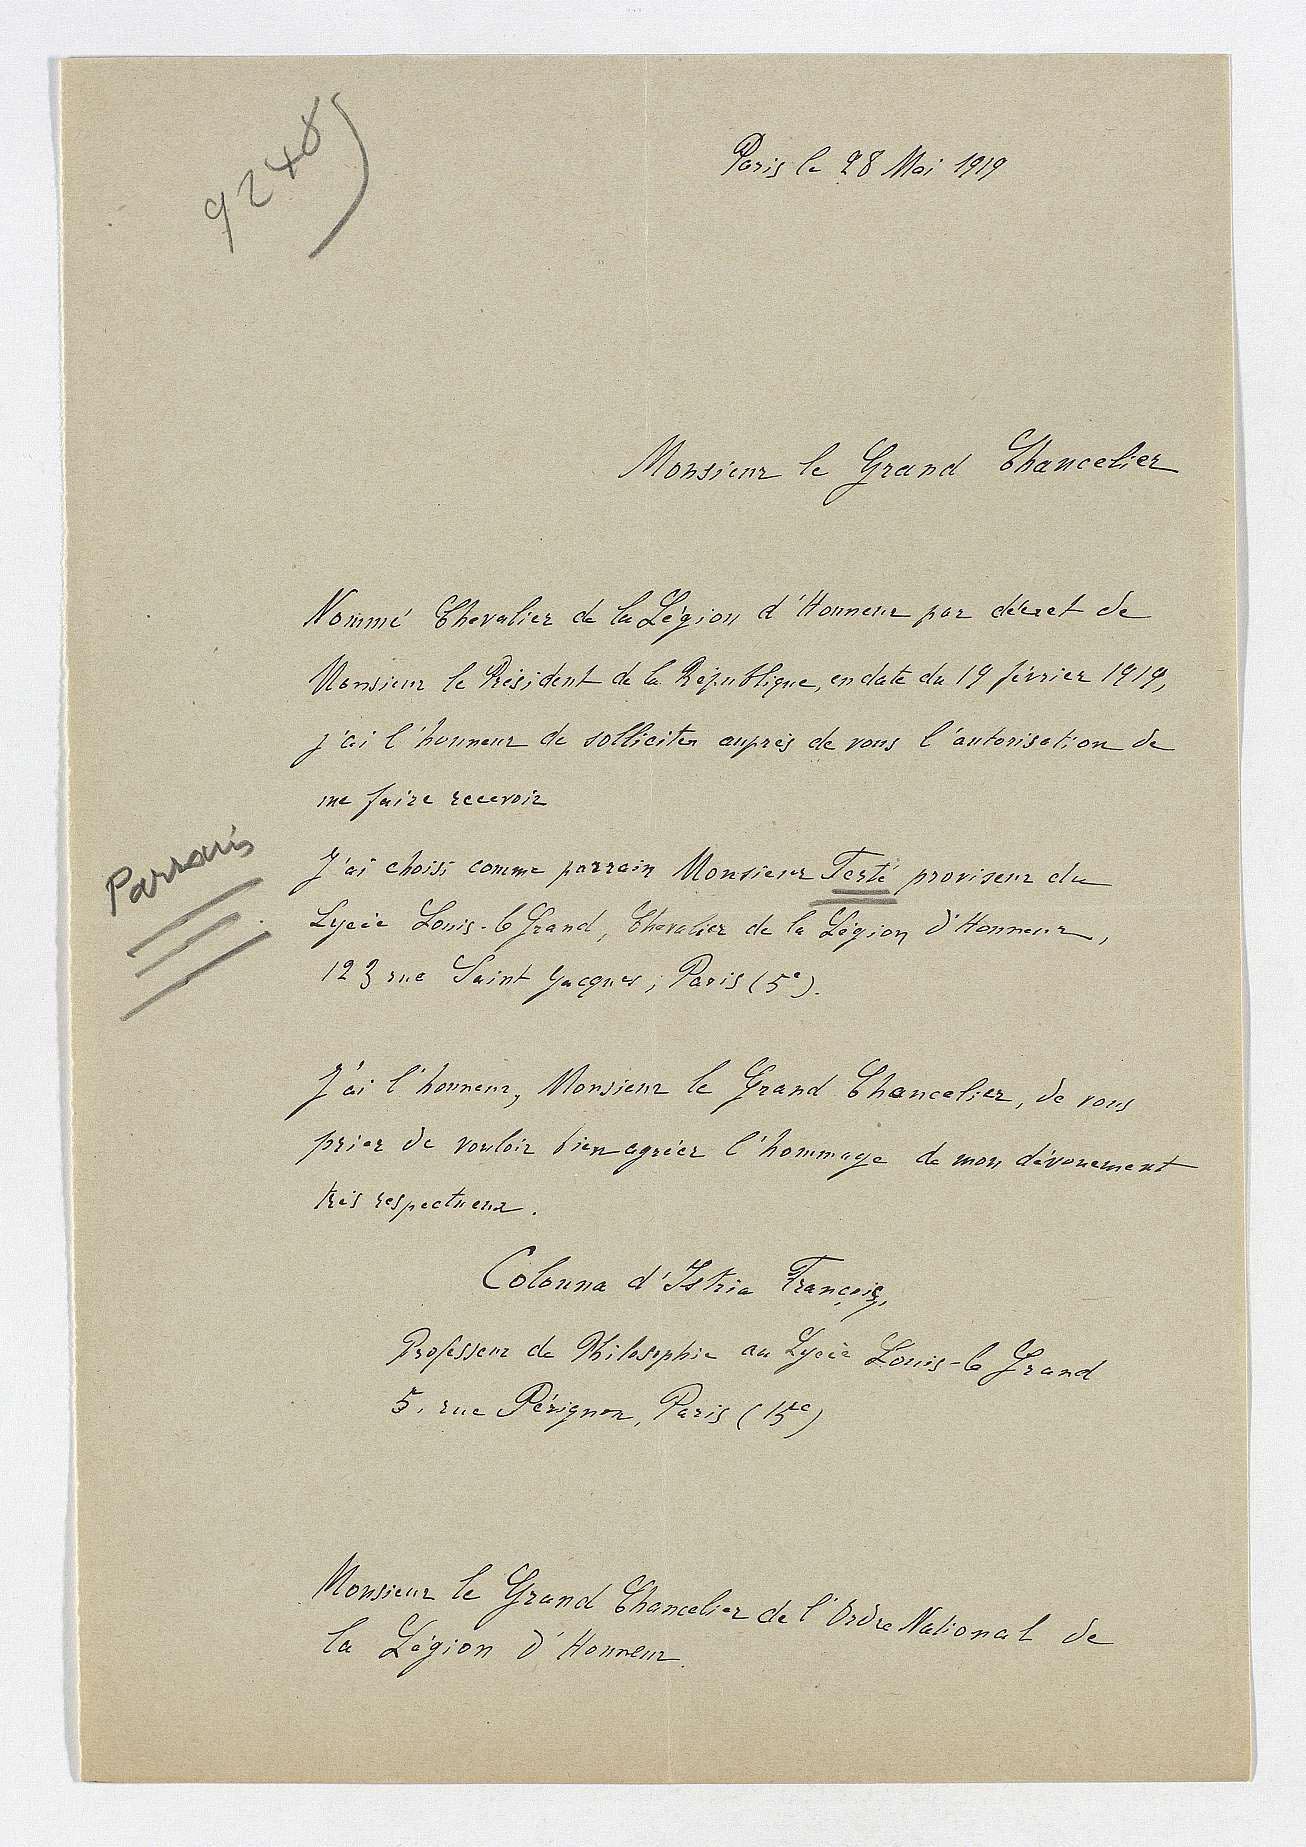 9248)
Paris le 28 Mai 1919
Monsieur le Grand Chancelier
Nommé Chevalier de la Légion d'Honneur par décret de
Monsieur le Président de la République, en date du 19 février 1919,
j'ai l'honneur de solliciter auprès de vous l'autorisation de
me faire recevoir
J'ai choisi comme parrain Monsieur Ferté proviseur du
Lycée Louis-le Grand, Chevalier de la Légion d'Honneur,
123 rue Saint Jacques, Paris (5e).
Parrain
J'ai l'honneur, Monsieur le Grand Chancelier, de vous
prier de vouloir bien agréer l'hommage de mon dévouement
très respectueux.
Colonna d'Istria François,
Professeur de Philosophie au Lycée Louis-le Grand
5, rue Pérignon, Paris (15e)
Monsieur le Grand Chancelier de l'Ordre National de
la Légion d'Honneur.